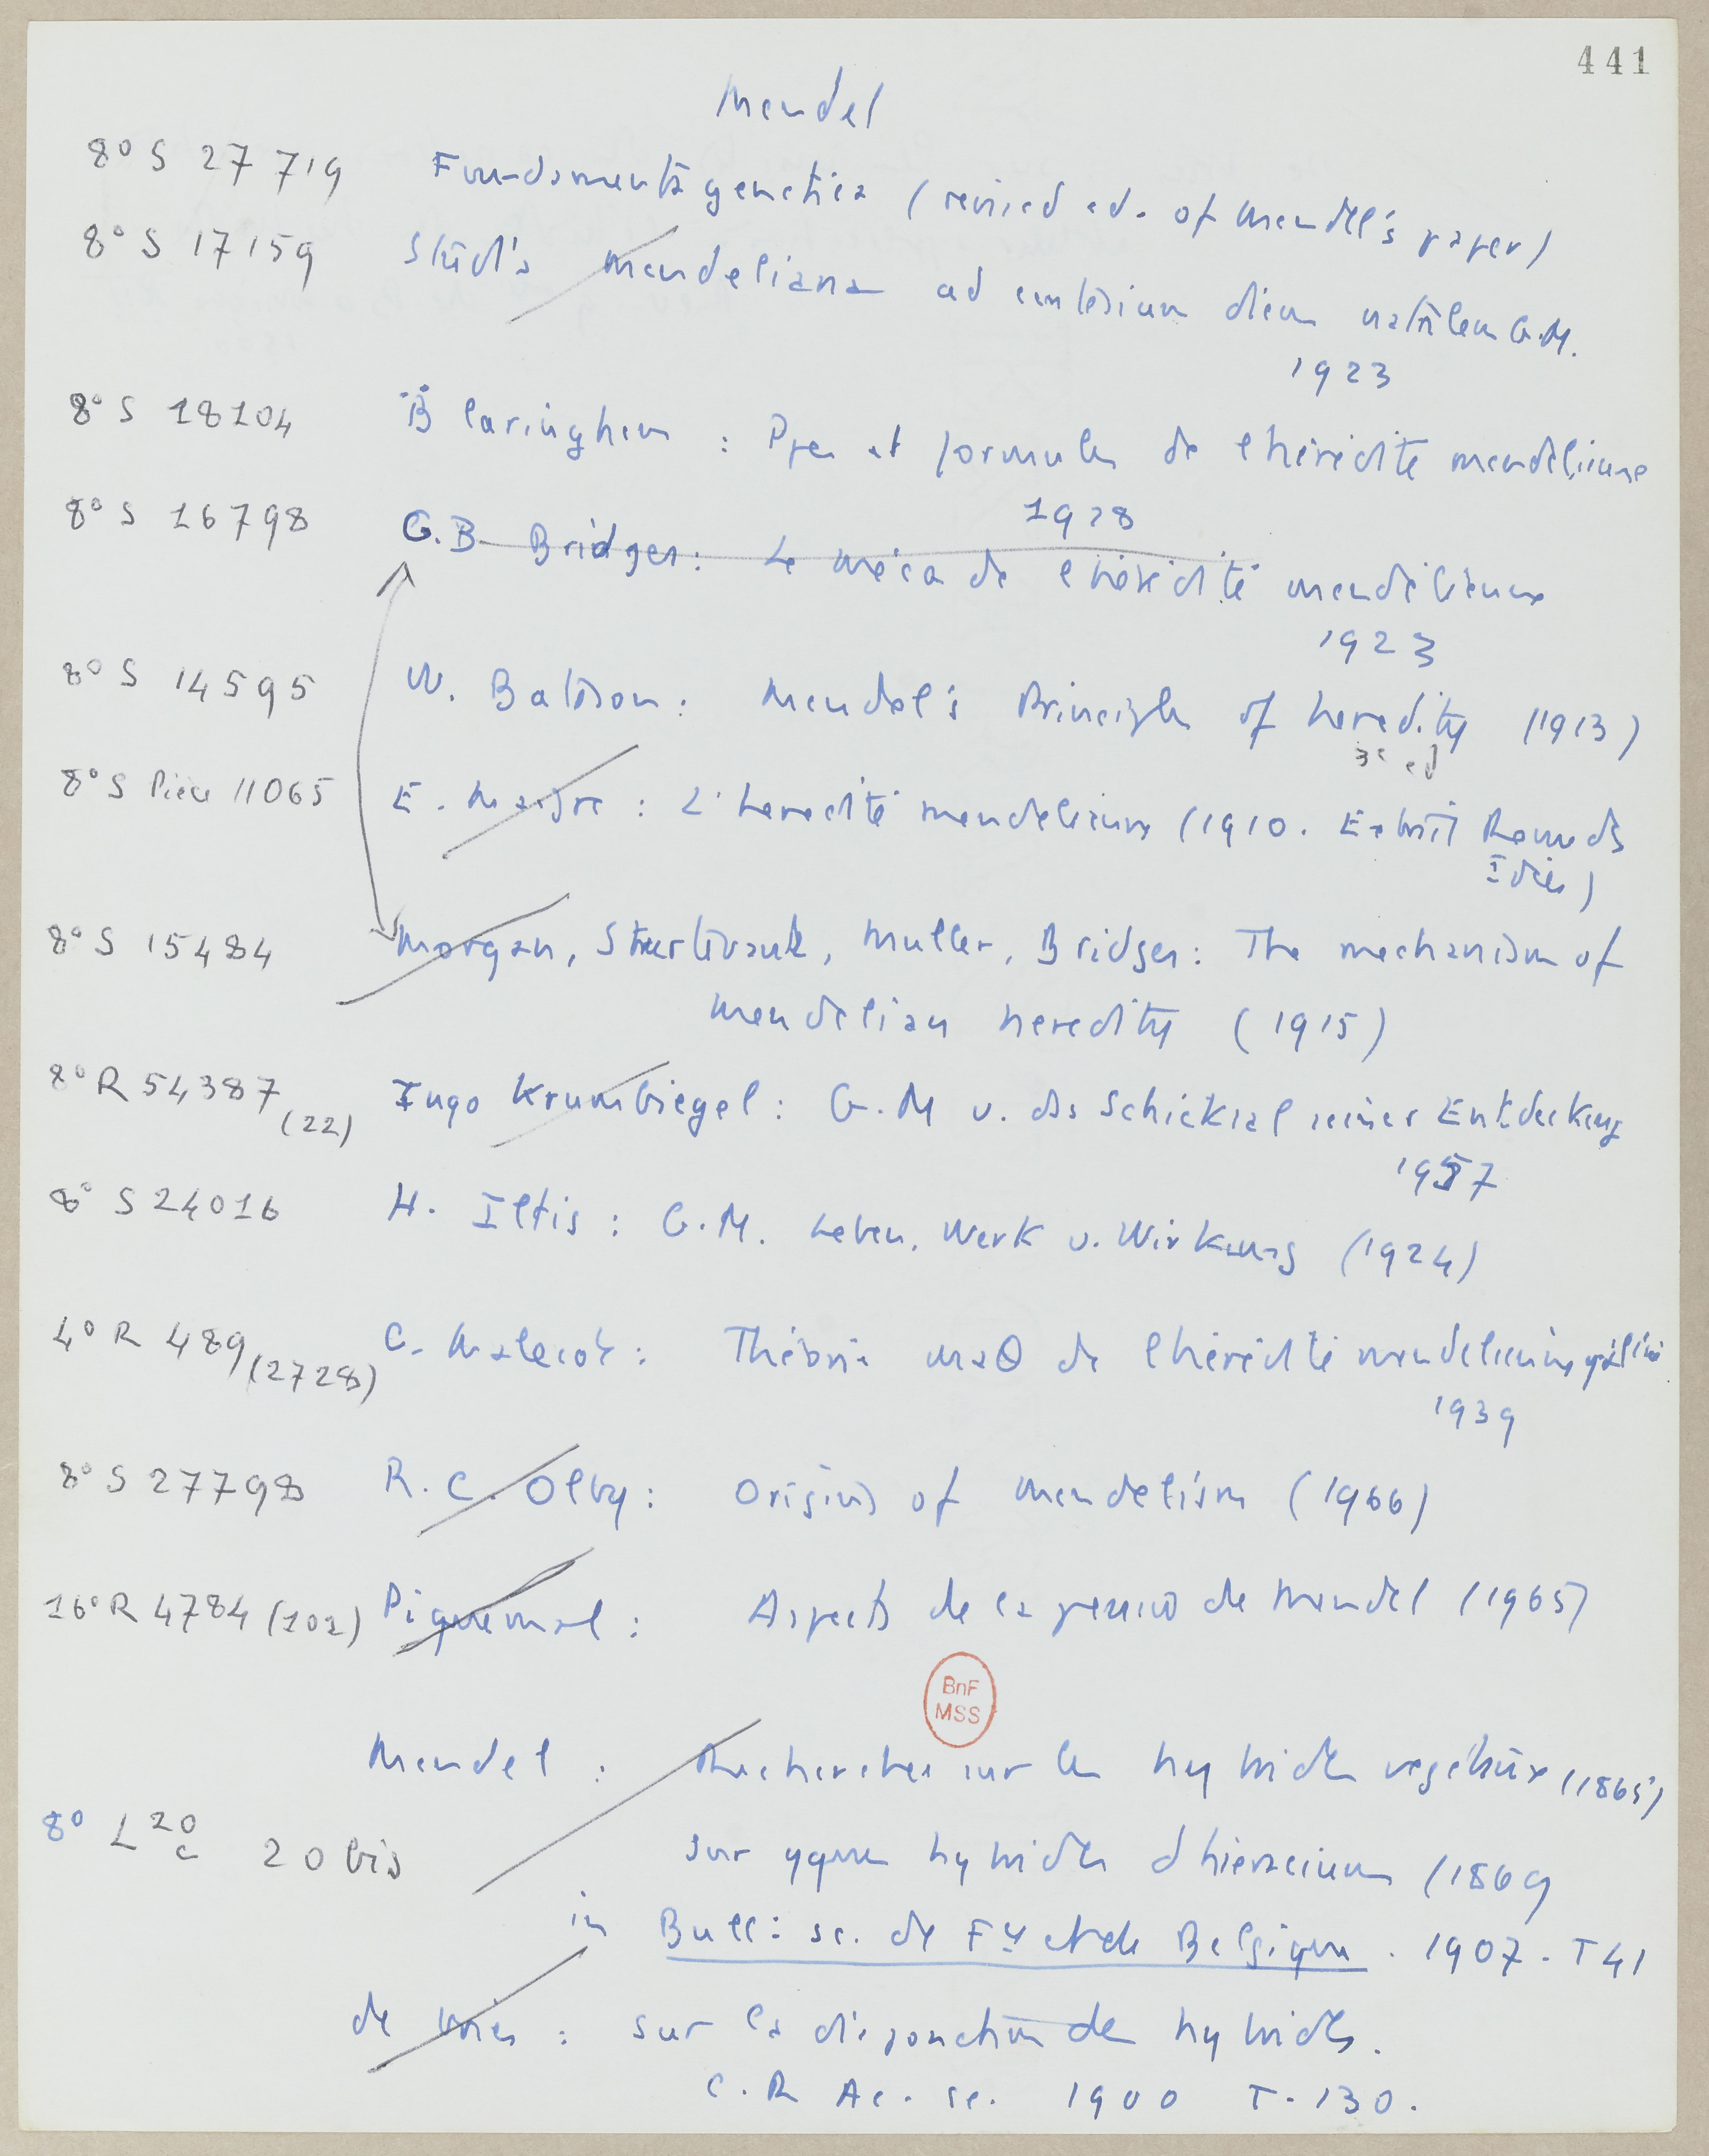 441
Mendel
8° S 27 719 Fundamenta genetica (revised ed. of Mendel's paper)
8° S 17159 Studia mendeliana ad centesium diem natalem G.M.
1923
8° S 18104 Blaringhem : Ppes et formules de l'hérédité mendélienne
1928
8° S 16798 G.B Bridges: Le méca de l'hérédité mendélienne
1923
8° S 14595 W. Bateson: Mendel's Principles of heredity (1913)
3e ed
8° S Pièce 11065 E. : L'heredité mendelienne (1910. Extrait Revue des
Idées)
8° S 15484 Morgan, Sturtevant, Muller, Bridges: The mechanism of
mendelian heredity (1915)
8° R 54387 (22) Ingo Krumbiegel: G.M u. das Schicksal seiner Entdeckung
1957
8° S 24016 H. Iltis: G.M. Leben. Werk u. Wirkung (1924)
4° R 489 (2728) G. Malecot: Théorie maθ de l'hérédité mendelienne
1939
8° S 27798 R.C. Olby: Origins of mendelism (1966)
16° R 4784 (101) Piquemal: Aspects de la pensée de Mendel (1965)
BnF
MSS
Mendel : Recherches sur les hybrides végétaux (1865)
8° L 20 c 20 bis sur qques hybrides d'hieracium (1869
in Bull: sc. de Fr et de Belgique. 1907. T41
de Vries : sur la disjonction des hybrides.
C.R Ac. sc. 1900 T.130.